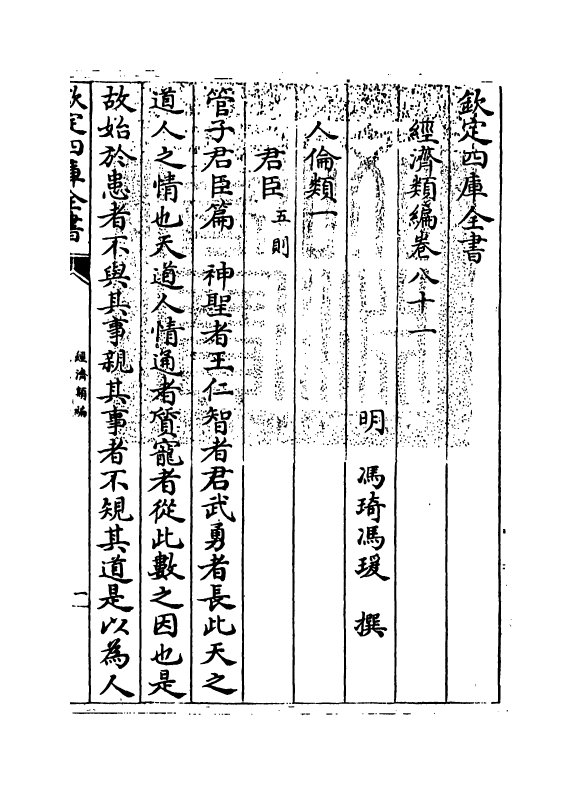 欽定四庫全書
經濟類編卷八十一
明 馮琦馮瑗 撰
人倫類一
君臣五則
管子君臣篇 神聖者王仁智者君武勇者長此天之
道人之情也天道人情通者質寵者從此數之因也是
故始於患者不與其事親其事者不規其道是以為人
欽定四庫全書
經濟類編
一